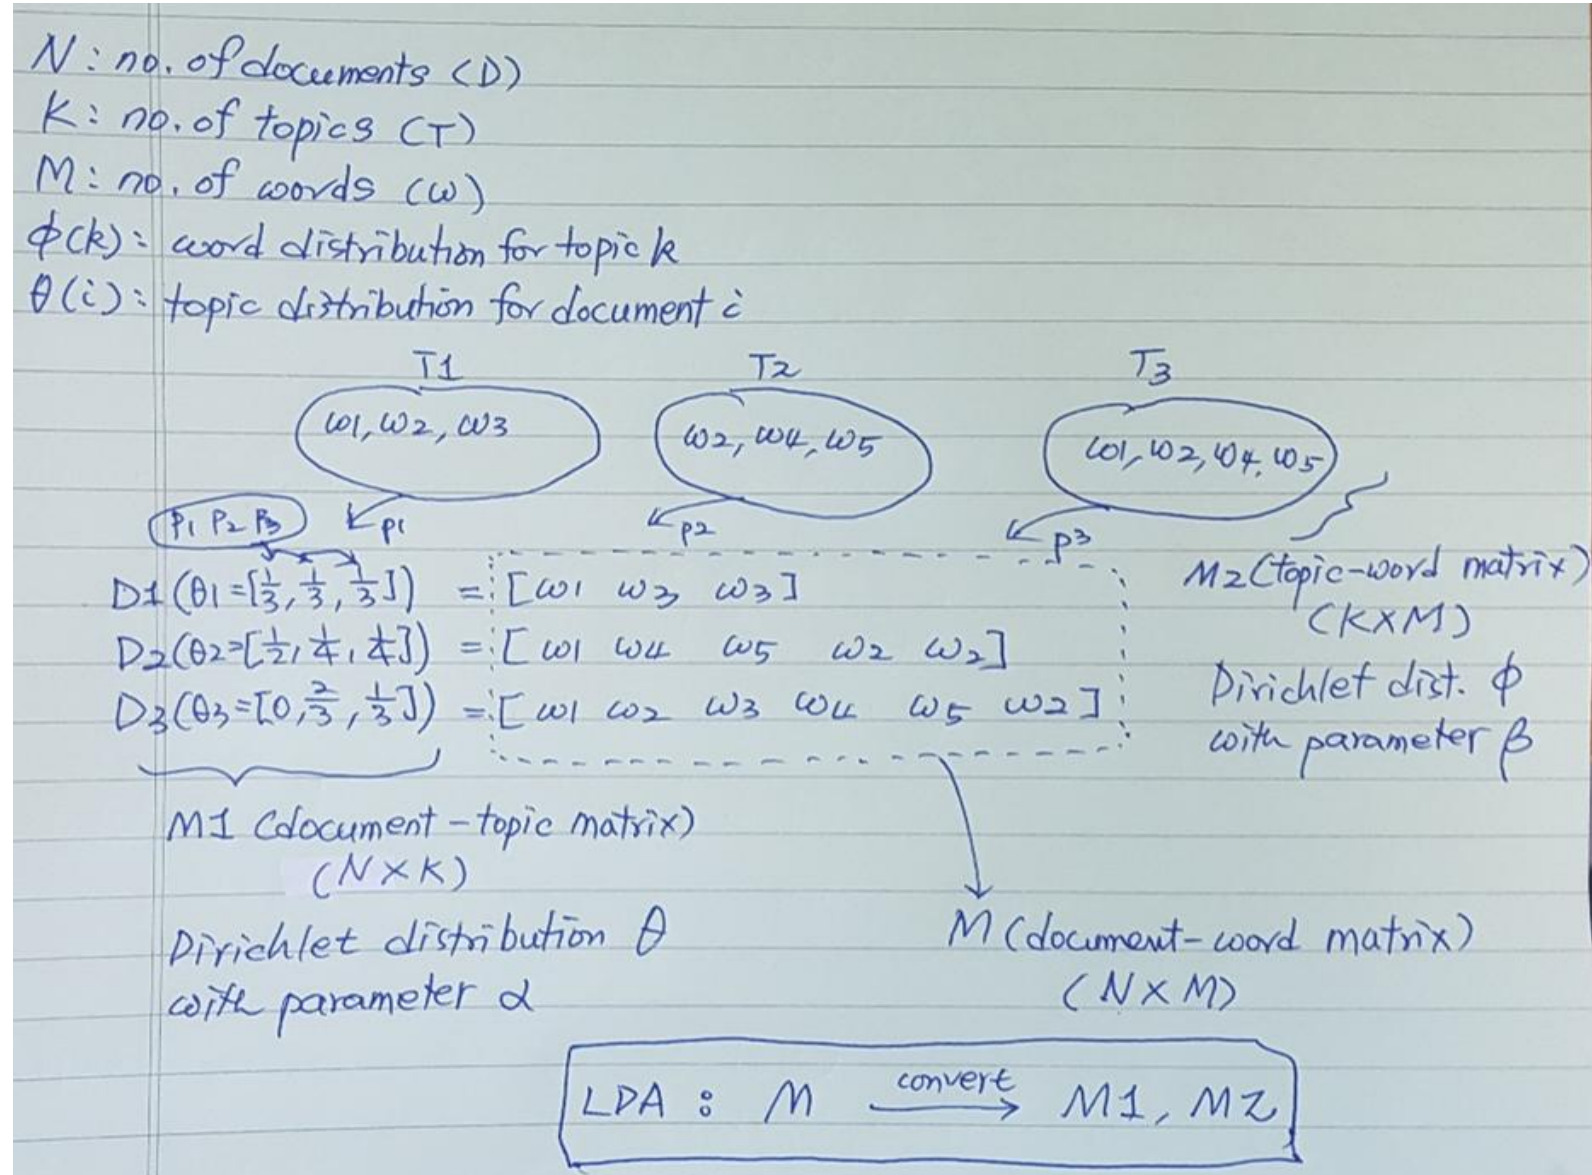 N: no. of documents (D)
K: no. of topics (T)
M: no. of words (ω)
φ(k): word distribution for topic k
θ(i): topic distribution for document i
T1 T2 T3
ω1, ω2, ω3
ω2, ω4, ω5
ω1, ω2, ω4, ω5
P1 P2 P3 p1 p2 p3
D1(θ1=[1/3, 1/3, 1/3]) = [ω1 ω3 ω3]
D2(θ2=[1/2, 1/4, 1/4]) = [ω1 ω4 ω5 ω2 ω2]
D3(θ3=[0, 2/3, 1/3]) = [ω1 ω2 ω3 ω4 ω5 ω2]
M2 (topic-word matrix)
(K×M)
Dirichlet dist. φ
with parameter β
M1 (document-topic matrix)
(N×K)
Dirichlet distribution θ
with parameter α
M (document-word matrix)
(N×M)
LDA : M convert → M1, M2